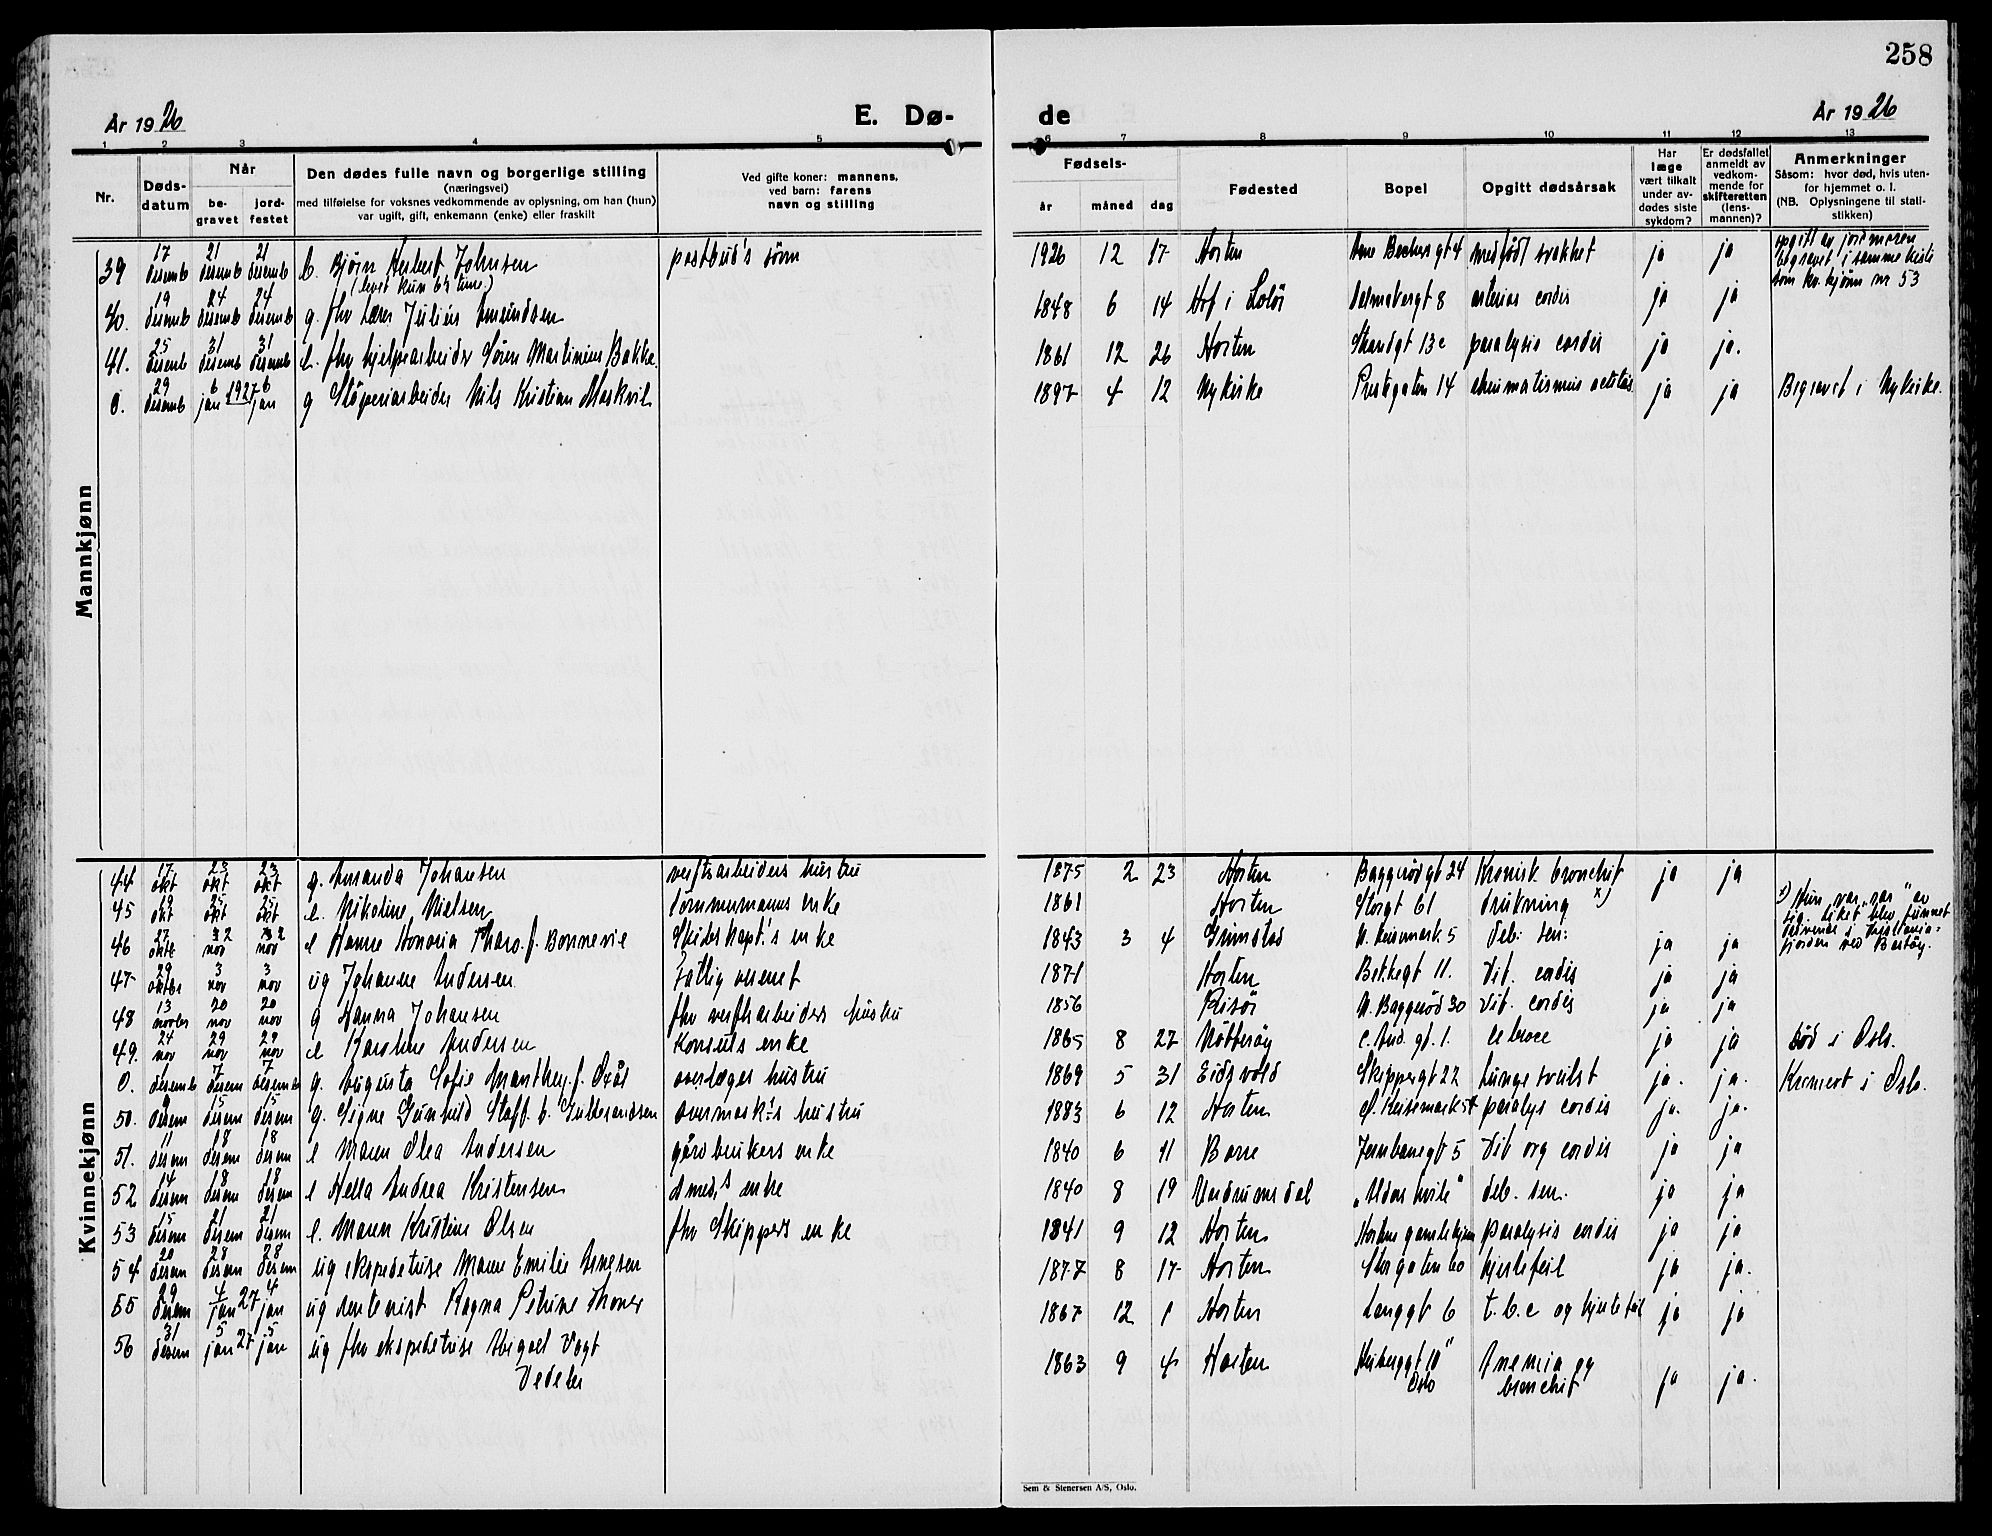 258
År 1926
E. Dø-
de
År 1926
1 2 3 4 5
6 7 8 9 10 11 12 13
Nr.
Døds-
datum
Når
be-
gravet
jord-
festet
Den dødes fulle navn og borgerlige stilling
(næringsvei)
med tilføielse for voksnes vedkommende av oplysning, om han (hun)
var ugift, gift, enkemann (enke) eller fraskilt
Ved gifte koner: mannens,
ved barn: farens
navn og stilling
Fødsels-
år
måned
dag
Fødested
Bopel
Opgitt dødsårsak
Har
læge
vært tilkalt
under av-
dødes siste
sykdom?
Er dødsfallet
anmeldt av
vedkom-
mende for
skifteretten
(lens-
mannen)?
Anmerkninger
Såsom: hvor død, hvis uten-
for hjemmet o. l.
(NB. Oplysningene til stati-
stikken)
Mannkjønn
39 17 desemb 21 desemb 21 desemb b. Bjørn Herbert Johnsen postbud's sönn 1926 12 17 Horten medfödt svakhet ja ja opgitt av jordmoren
(levet kun 6½ time.) begravet i samme kiste
som kv. kjønn nr 53
40. 19 desemb 24 desemb 24 desemb g. fhv Lærer Julius Amundsen 1848 6 14 Hof i Solör 8 cordis ja ja
41. 25 desemb 31 desemb 31 desemb e. fhv hjelpearbeider Sören Martinius Bakke 1861 12 26 Horten Strandgt 13c paralysis cordis ja ja.
0. 29 desemb 6 jan 1927 6 jan g Stöperiarbeider Nils Kristian Moskvil 1897 4 12 Nykirke Prestegaten 14 ja ja Begravet i Nykirke.
Kvinnekjønn
44 17 okt 23 okt 23 okt g. Amanda Johansen verftsarbeiders hustru 1875 2 23 Horten Baggerödgt 24 Kronisk bronchit ja ja
45 19 okt 25 okt 25 okt e. Nikoline Nielsen tömmermanns enke 1861 Horten Storgt 61 drukning x) x) Hun var "rar" av
46 27 okt 2 nov 2 nov e Hanne Honoria f. Bonnevie Skibskapt.'s enke 1843 3 4 Grimstad deb: sen: ja ja sig. Liket blev funnet
drivende i Kristiania-
fjorden ved Bastöy.
47 29 oktbr 3 nov 3 nov ug Johanne Andersen Fattig 1871 Horten Bekkegt 11. Vit. cordis ja ja
48 13 novbr 20 nov 20 nov g Hanna Johansen fhv verftsarbeiders hustru 1856 Risör N. Baggeröd 30 vit. cordis ja ja
49. 24 nov 29 nov 29 nov e Karoline Andersen Konsuls enke 1865 8 27 Nötteröy ja ja död i Oslo.
0. desemb 7 desem 7 desemb g. Augusta Sofie Manthey f. overlæges hustru 1869 5 31 Eidsvold Skippergt 22 Lungesvulst ja. ja. Kremert i Oslo.
50. 9 desem 15 desem 15 desem g. Signe Gunhild Staff f. Gulbrandsen overmask's hustru 1883 6 12 Horten paralys cordis ja. ja.
51. 11 desem 18 desem 18 desem e Maren Olea Andersen gårdbrukers enke 1840 6 11 Borre Jernbanegt 5 Vit org cordis ja ja
52 14 desem 18 desem 18 desem e Hella Andrea Kristensen smeds enke 1840 8 19 Undrumsdal "Aldershvile" deb. sen. ja ja
53 15 desem 21 desem 21 desem e. Maren Kristine Olsen fhv Skippers enke 1841 9 12 Horten Hortens gamlehjem paralysis cordis ja ja
54 20 desem 28 desem 28 desem ug ekspeditrise Marie Emilie Arnesen 1877 8 17 Horten Storgaten 60 hjertefeil ja ja.
55 29 desem 4 jan 27 4 jan ug Ragna Petrine 1867 12 1 Horten Langgt 6 t.b.c og hjertefeil ja ja
56 31 desem 5 jan 27 5 jan ug fhv ekspeditrise Abigael Vogt 1863 9 4 Horten 10 Anemia og ja ja.
Vedeler Oslo bronchit
Sem & Stenersen A/S, Oslo.